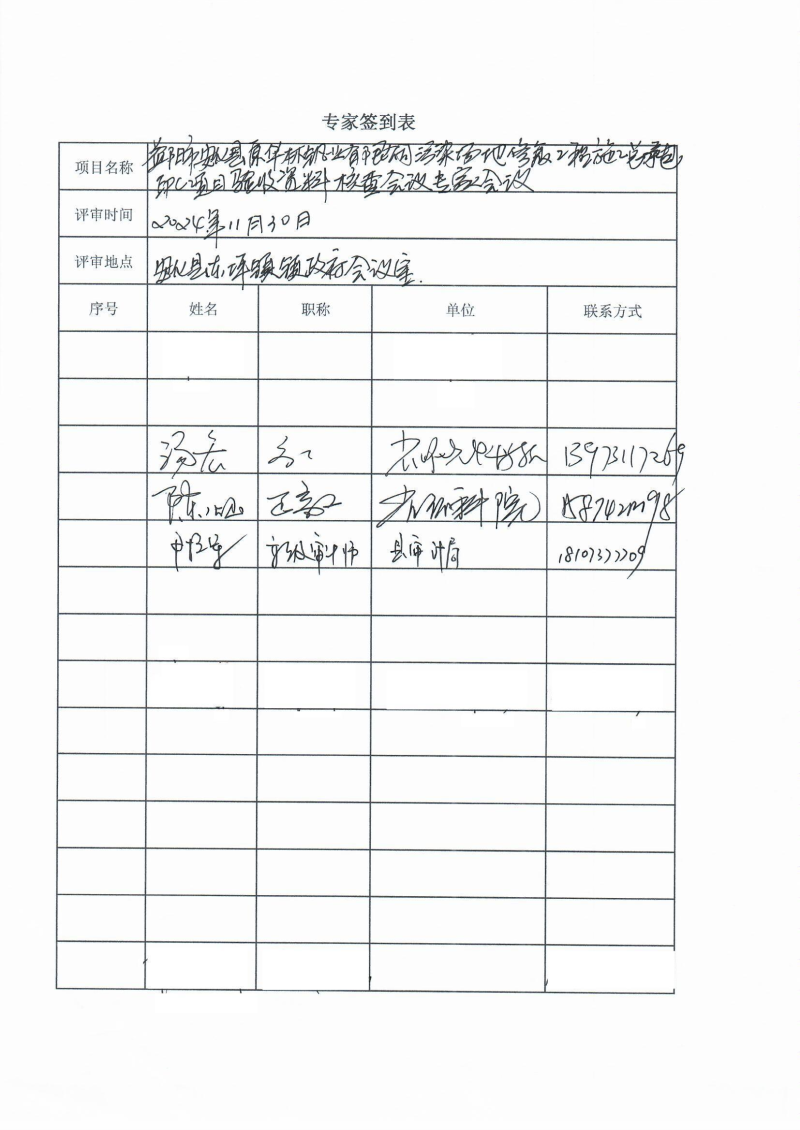 专家签到表
项目名称 益阳市安化县原华林钒业有限公司污染场地修复工程施工总承包
EPC项目验收资料核查会议专家会议
评审时间 2024年11月30日
评审地点 安化县东坪镇镇政府会议室.
序号 姓名 职称 单位 联系方式
汤宏 高工 13973117269
陈 正高工 省环科院
审计师 县审计局 18107377209